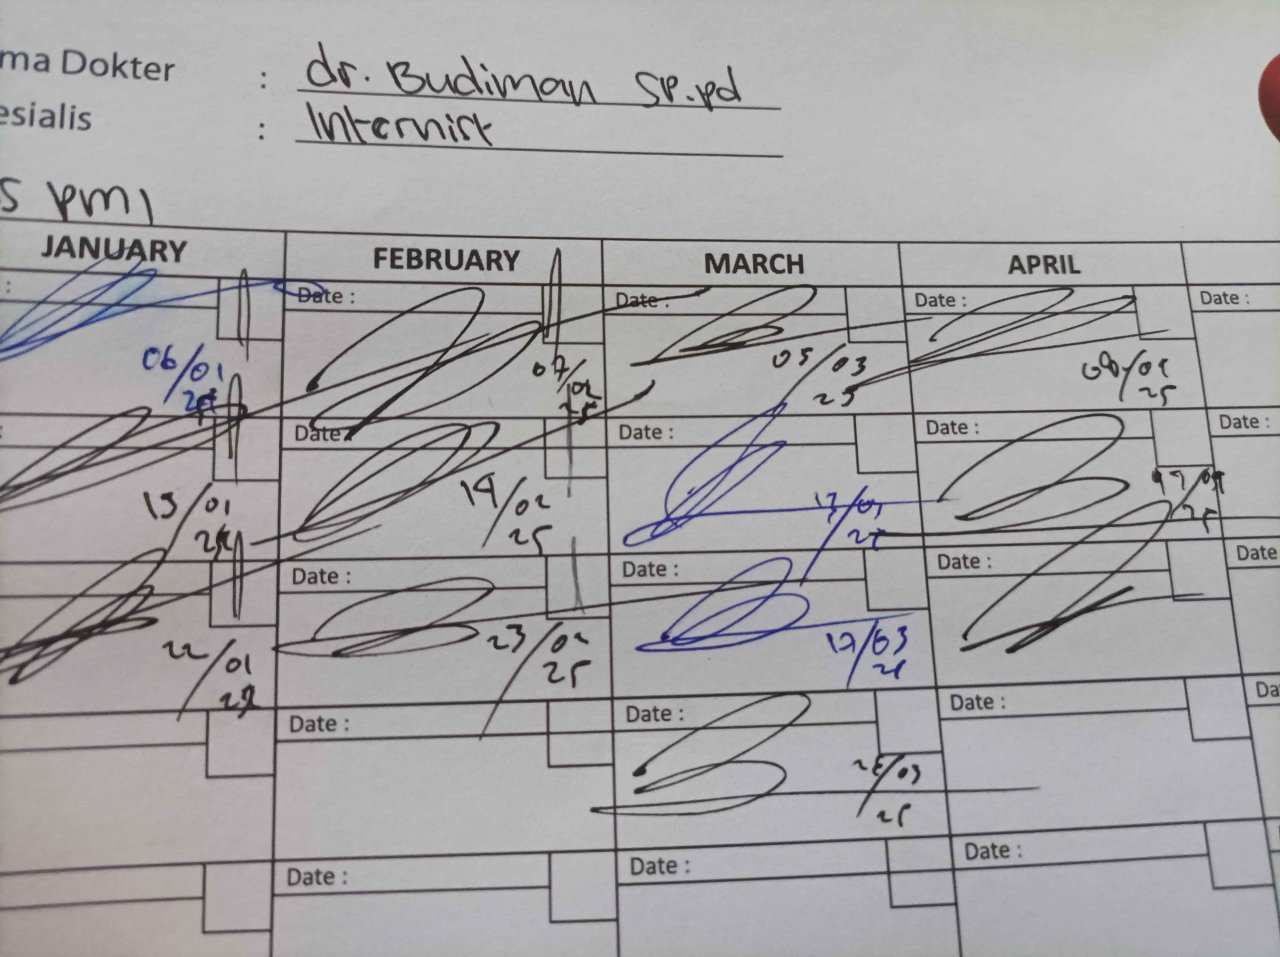 ma Dokter : dr. Budiman SP.pd
esialis : Internist
S pm1
JANUARY FEBRUARY MARCH APRIL
: Date : Date : Date : Date :
06/01 07/02 05/03 08/04
25 25 25
: Date : Date : Date : Date :
13/01 14/02 13/03 17/04
25 25 25
Date : Date : Date : Date
22/01 23/02 17/03
25
Date : Date : Date : Da
/03
25
Date : Date : Date :